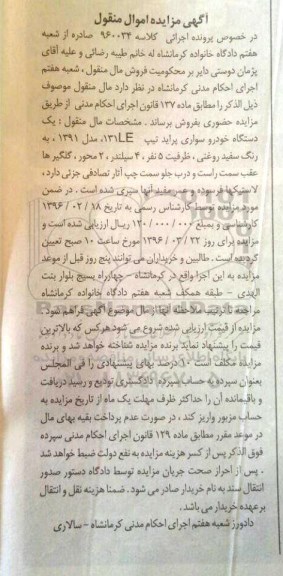 آگهی مزایده اموال منقول
در خصوص پرونده اجرائی کلاسه ۹۶۰۰۲۴ صادره از شعبه
هفتم دادگاه خانواده کرمانشاه له خانم طیبه رضائی و علیه آقای
پژمان دوستی دایر بر محکومیت فروش مال منقول ، شعبه هفتم
اجرای احکام مدنی کرمانشاه در نظر دارد مال منقول موصوف
ذیل الذکر را مطابق ماده ۱۳۷ قانون اجرای احکام مدنی از طریق
مزایده حضوری بفروش برساند . مشخصات مال منقول : یک
دستگاه خودرو سواری پراید تیپ ۱۳۱LE، مدل ۱۳۹۱ ، به
رنگ سفید روغنی ، ظرفیت ۵ نفر ، ۴ سیلندر ، ۲ محور ، گلگیر ها
عقب سمت راست و درب جلو سمت چپ آثار تصادفی جزئی دارد ،
لاستیکها فرسوده و عمر مفید آنها سپری شده است . در ضمن
مورد مزایده توسط کارشناس رسمی به تاریخ ۱۸ / ۰۲ / ۱۳۹۶
کارشناسی و بمبلغ ۱۲۰/۰۰۰/۰۰۰ ریال ارزیابی شده است و
مزایده برای روز ۲۲ / ۰۳ / ۱۳۹۶ مورخ ساعت ۱۰ صبح تعیین
گردیده است . طالبین و خریداران می توانند پنج روز قبل از موعد
مزایده به این اجرا واقع در کرمانشاه - چهارراه بسیج بلوار بنت
الهدی - طبقه همکف شعبه هفتم دادگاه خانواده کرمانشاه
مراجعه تا ترتیب ملاحظه آنها از مال موضوع آگهی فراهم شود .
مزایده از قیمت ارزیابی شده شروع می شود هرکس که بالاترین
قیمت را پیشنهاد نماید برنده مزایده شناخته خواهد شد و برنده
مزایده مکلف است ۱۰ درصد بهای پیشنهادی را فی المجلس
بعنوان سپرده به حساب سپرده دادگستری تودیع و رسید دریافت
و باقیمانده آن را حداکثر ظرف مهلت یک ماه از تاریخ مزایده به
حساب مزبور واریز کند ، در صورت عدم پرداخت بقیه بهای مال
در موعد مقرر مطابق ماده ۱۲۹ قانون اجرای احکام مدنی سپرده
فوق الذکر پس از کسر هزینه مزایده به نفع دولت ضبط خواهد شد
. پس از احراز صحت جریان مزایده توسط دادگاه دستور صدور
انتقال سند به نام خریدار صادر می شود . ضمنا هزینه نقل و انتقال
بر عهده خریدار می باشد .
دادورز شعبه هفتم اجرای احکام مدنی کرمانشاه - سالاری